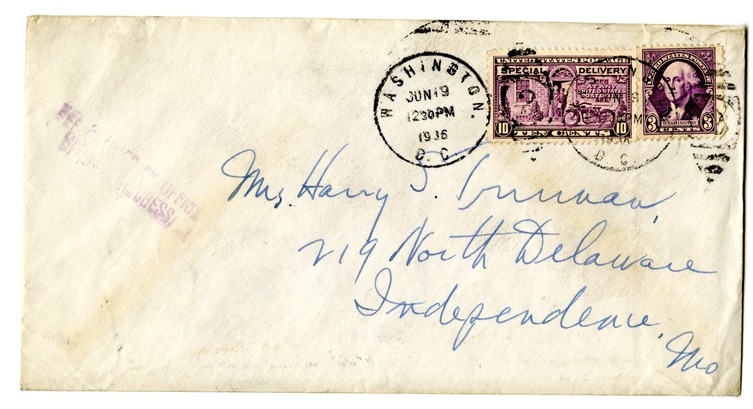 WASHINGTON,
JUN 19
12 30 PM
1936
D. C.
UNITED STATES POSTAGE
SPECIAL DELIVERY
AT ANY
UNITED STATES
POST OFFICE
10 TEN CENTS 10
UNITED STATES POSTAGE
WASHINGTON
3 CENTS 3
D. C.
OFFICE
ADDRESS
Mrs. Harry S. Truman,
219 North Delaware
Independence,
Mo